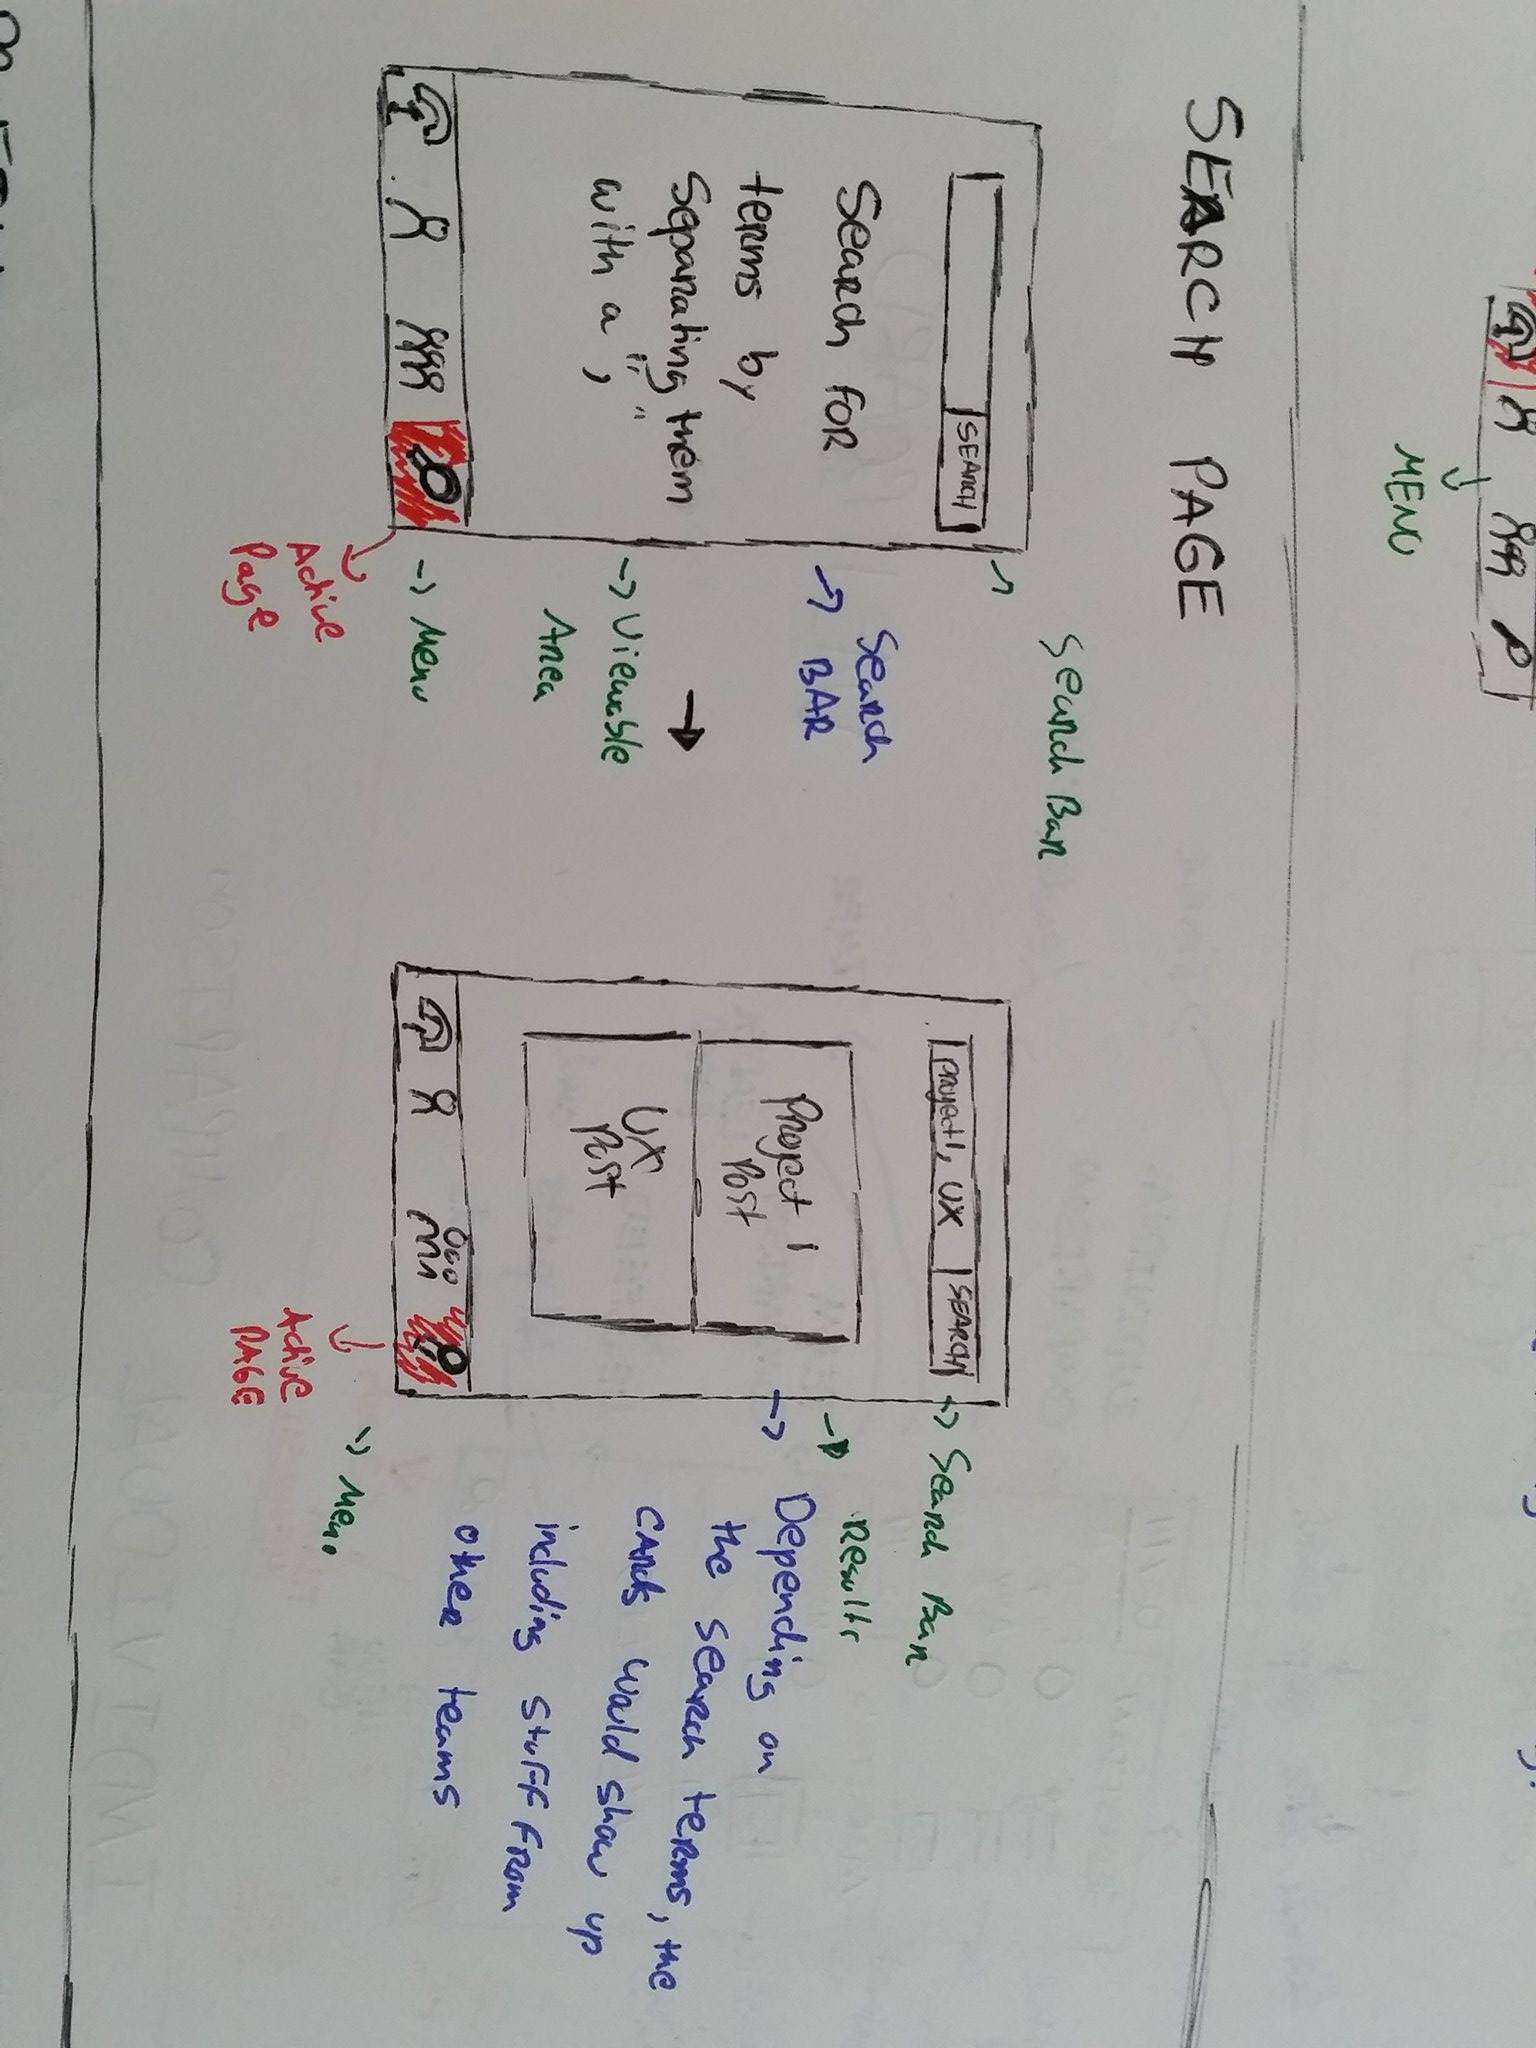 MENU
SEARCH PAGE
Search Bar
SEARCH
Search FOR
terms by
Separating them
","
with a ,
Search
BAR
Viewable
Area
Menu
Active
Page
Project 1, UX
SEARCH
Project 1
Post
UX
Post
Search Bar
Results
Depending on
the search terms, the
CARDS would show up
including stuff from
other teams
Menu
Active
PAGE